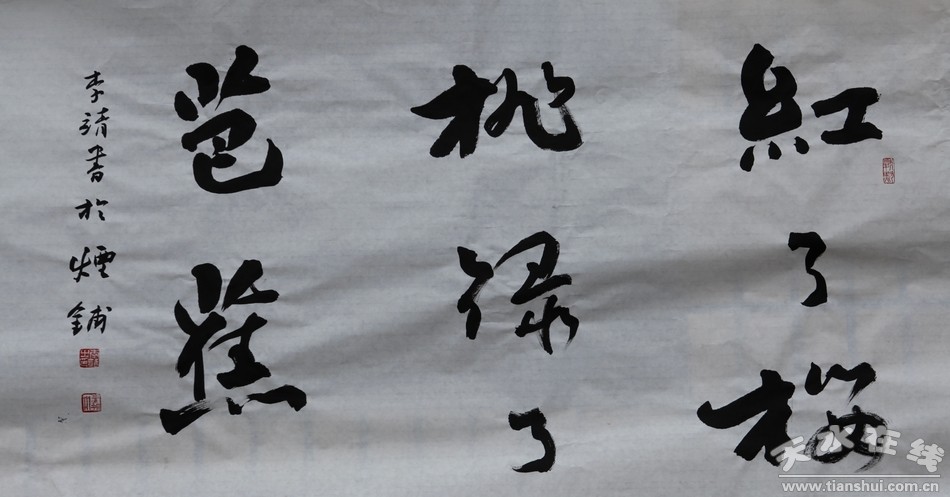 紅了櫻
桃綠了
芭蕉
李靖書於煙鋪
天水在线
www.tianshui.com.cn